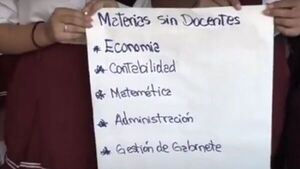 Materias Sin Docentes
* Economia
* Contabilidad
* Matemática
* Administración
* Gestión de Gabinete